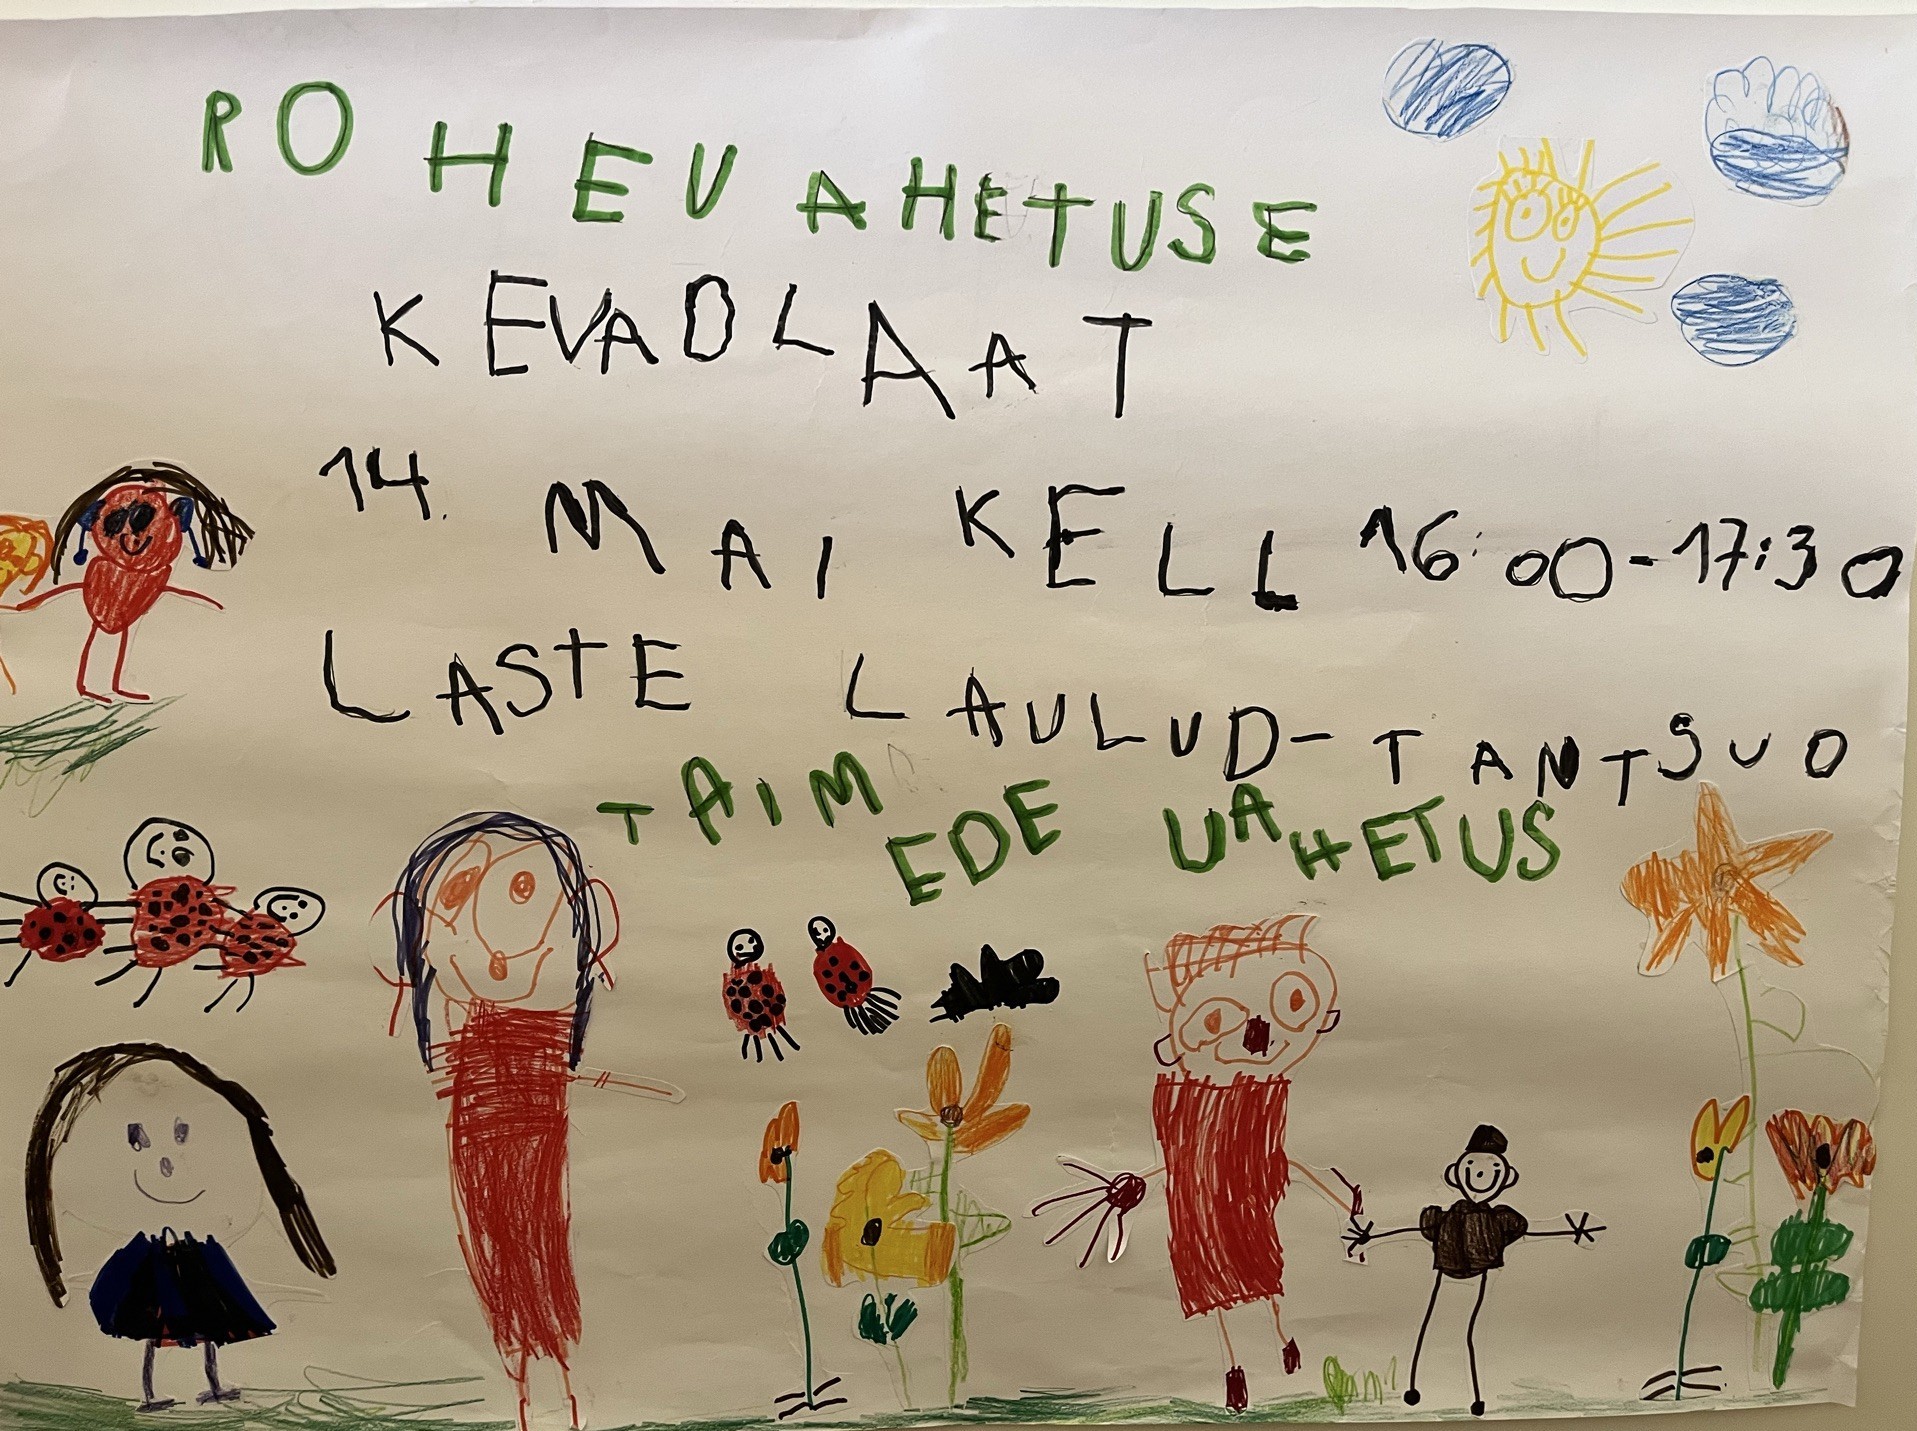 ROHEVAHETUSE
KEVADLAAT
14. MAI KELL 16:00-17:30
LASTE LAULUD-TANTSUD
TAIMEDE VAHETUS